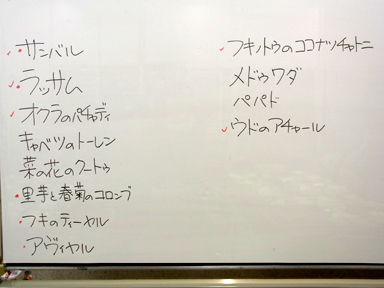 サンバル
ラッサム
オクラのパチャディ
キャベツのトーレン
菜の花のクートゥ
里芋と春菊のコロンブ
フキのティーヤル
アヴィヤル
フキノトウのココナッツチャトニ
メドゥワダ
パパド
ウドのアチャール